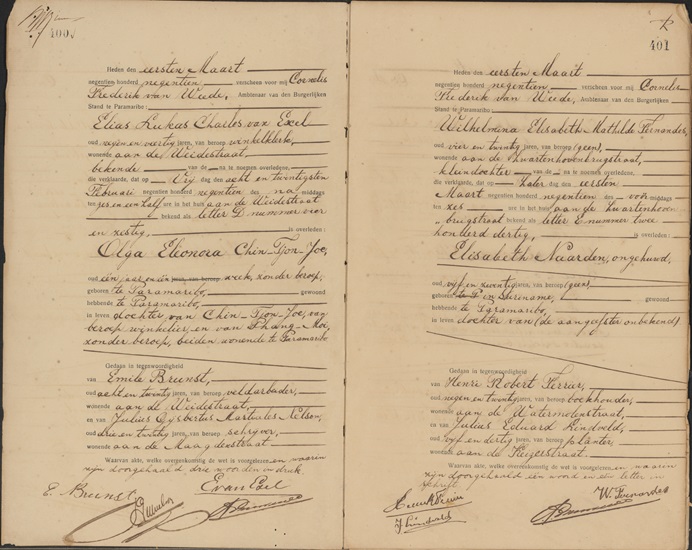 400
Heden den eersten Maart
negentien honderd negentien verscheen voor mij Cornelis
Frederik van Weede, Ambtenaar van den Burgerlijken
Stand te Paramaribo:
Elias Lukas Charles van Exel
oud negen en veertig jaren, van beroep winkelklerk,
wonende aan de Weidestraat,
bekende van de na te noemen overledene,
die verklaarde, dat op Vrij dag den acht en twintigsten
Februari negentien honderd negentien des na middags
ten zes en half ure in het huis aan de Weidestraat
bekend als letter D nummer vier
en zestig, is overleden:
Olga Eleonora Chin-Tjon-Joe,
oud één jaar en één week, zonder beroep,
geboren te Paramaribo, gewoond
hebbende te Paramaribo,
in leven dochter van Chin-Tjon-Joe, van
beroep winkelier, en van
zonder beroep, beiden wonende te Paramaribo
Gedaan in tegenwoordigheid
van Emile Brunst,
oud acht en twintig jaren, van beroep veldarbeider,
wonende aan de Weidestraat,
en van Julius Gysbertus Martinus Nelson,
oud drie en twintig jaren, van beroep schryver,
wonende aan de Maagdenstraat
Waarvan akte, welke overeenkomstig de wet is voorgelezen, en waarin
zijn doorgehaald drie woorden in druk.
E. Brunst
E van Exel
401
Heden den eersten Maart
negentien honderd negentien verscheen voor mij Cornelis
Frederik van Weede, Ambtenaar van den Burgerlijken
Stand te Paramaribo:
Wilhelmina Elisabeth Mathilde Fernandes,
oud vier en twintig jaren, van beroep geen,
wonende aan de Zwartenhovenbrugstraat,
kleindochter van de na te noemen overledene,
die verklaarde, dat op Zater dag den eersten
Maart negentien honderd negentien des voor middags
ten zes ure in het huis aan de Zwartenhoven-
brugstraat bekend als letter E nummer twee
honderd dertig, is overleden:
Elisabeth Naarden, ongehuwd,
oud vyf en zeventig jaren, van beroep geen,
geboren in Suriname, gewoond
hebbende te Paramaribo,
in leven dochter van (de aangeefster onbekend)
Gedaan in tegenwoordigheid
van Henri Robert Ferrier,
oud negen en twintig jaren, van beroep boekhouder,
wonende aan de Watermolenstraat,
en van Julius Eduard Lindveld,
oud vyf en dertig jaren, van beroep planter,
wonende aan de Steijerstraat.
Waarvan akte, welke overeenkomstig de wet is voorgelezen, en waarin
zijn doorgehaald een woord en een letter in
schrift
W. Fernandes